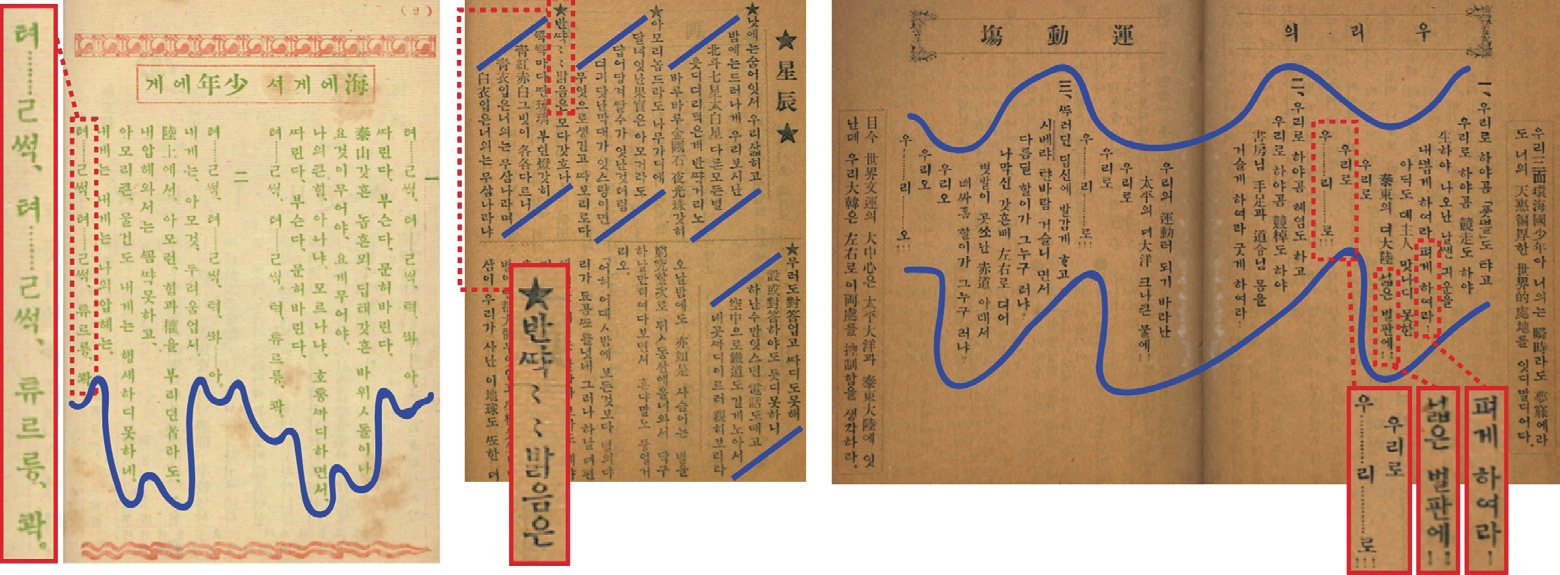 텨……ㄹ썩, 텨……ㄹ썩, 튜르릉, 콱.
(2)
海에게서 少年에게
一
텨……ㄹ썩, 텨……ㄹ썩, 텩, 쏴……아.
싸린다, 부슨다, 문허바린다,
泰山갓흔 놉흔뫼, 딥태갓흔 바위ㅅ돌이나,
요것이무어야, 요게무어야,
나의큰힘, 아나냐, 모르나냐, 호통싸디하면서,
싸린다, 부슨다, 문허바린다,
텨……ㄹ썩, 텨……ㄹ썩, 텩, 튜르릉, 콱.
二
텨……ㄹ썩, 텨……ㄹ썩, 텩, 쏴……아.
내게는, 아모것, 두려움업서,
陸上에서, 아모런, 힘과 權을 부리던者라도,
내압헤와서는 꼼땩못하고,
아모리큰, 물건도 내게는 행세하디못하네.
내게는 내게는 나의압헤는.
텨……ㄹ썩, 텨……ㄹ썩, 텩, 튜르릉, 콱.
★星辰★
★낫에는숨어잇서 우리삷히고
밤에는드러나게 우리보시난
北斗七星太白星 다른모든별
웃디리덕은게 반짝거리노
바루바루金剛石 夜光珠갓히
★아모리놉드라도 나무가디에
달녀잇난果實은 아모거라도
답어당겨쌀수가 잇난것터럼
더긔닷난막대가 잇스량이면
무엇으로생긴고 싸보리로다
★반짝〱 밝음은 모다갓호나
쪽쪽마다싼琉璃 부린燈갓히
靑紅赤白그빗이 各各다르니
靑衣입은너의는 무삼나라며
白衣입은너의는 무삼나라냐
★무러도對答업고 싸디도못해
設或對答하야도 듯디못하니
하난수만잇스면 電話도매고
空中으로鐵道도 길게노아서
네곳싸디이르러 觀히보리라
★반짝〱 밝음은
우리의 運動塲
우리三面環海國少年아 너의는 瞬時라도 夢寐에라
도 너의의 天惠偏厚한 世界的處地를 잇디말디어다.
一、우리로 하야곰 「풋뽈」도 타고
우리로 하야곰 競走도 하야
生하야 나오난 날쌘 긔운을
내쌥게 하여라 펴게 하여라!
아딕도 데主人 맛나디 못한
泰東의 뎌大陸 넓은 벌판에!!
우리로
우리로
우……리……로!!!
二、우리로 하야곰 헤염도 하고
우리로 하야곰 競棹도 하야
書房님 手足과 道令님 몸을
거슬게 하여라 굿게 하여라!
우리의 運動터 되기 바라난
太平의 뎌大洋 크나큰 물에!!
우리로
우리로
우……리……로!!!
三、싸러딘 딥신에 발감게 하고
시베랴 탼바람 거슬니 면서
다름딜 할이가 그누구 러냐!
나막신 갓흔배 左右로 뎌어
볏발이 곳쏘난 赤道 아래서
배싸홈 할이가 그누구 러냐!!
우리오
우리오
우……리……오!!!
目今 世界文運의 大中心은 太平大洋과 泰東大陸에 잇
난데 우리大韓은 左右로 이兩處를 控制함을 생각하라.
우리로
우……리……로!!!
넓은 벌판에!!
펴게 하여라!